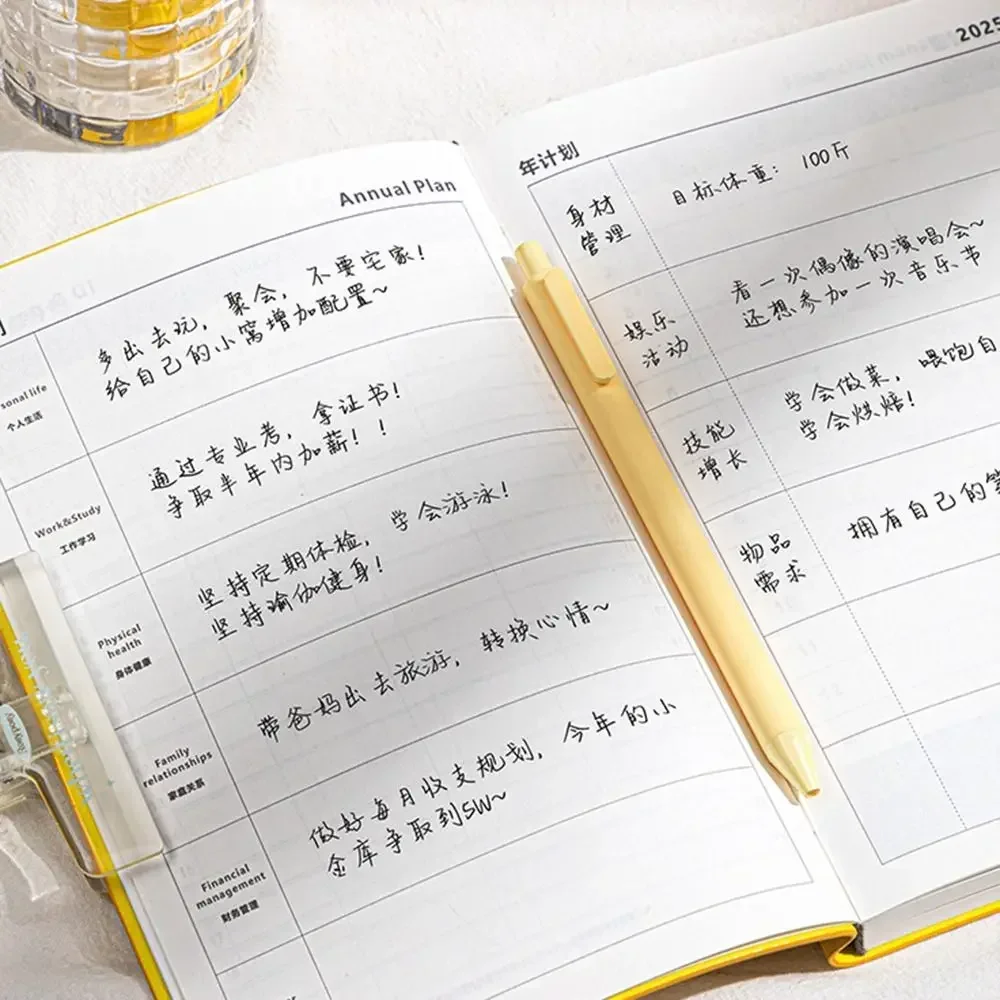 Annual Plan
sonal life
个人生活
多出去玩，聚会，不要宅家！
给自己的小窝增加配置~
Work&Study
工作学习
通过专业考，拿证书！
争取半年内加薪！！
Physical
health
身体健康
坚持定期体检，学会游泳！
坚持瑜伽健身！
Family
relationships
家庭关系
带爸妈出去旅游，转换心情~
Financial
management
财务管理
做好每月收支规划，今年的小
金库争取到5W~
2025
年计划
身材
管理
目标体重：100斤
娱乐
活动
看一次偶像的演唱会~
还想参加一次音乐节
技能
增长
学会做菜，喂饱自
学会烘焙！
物品
需求
拥有自己的笔